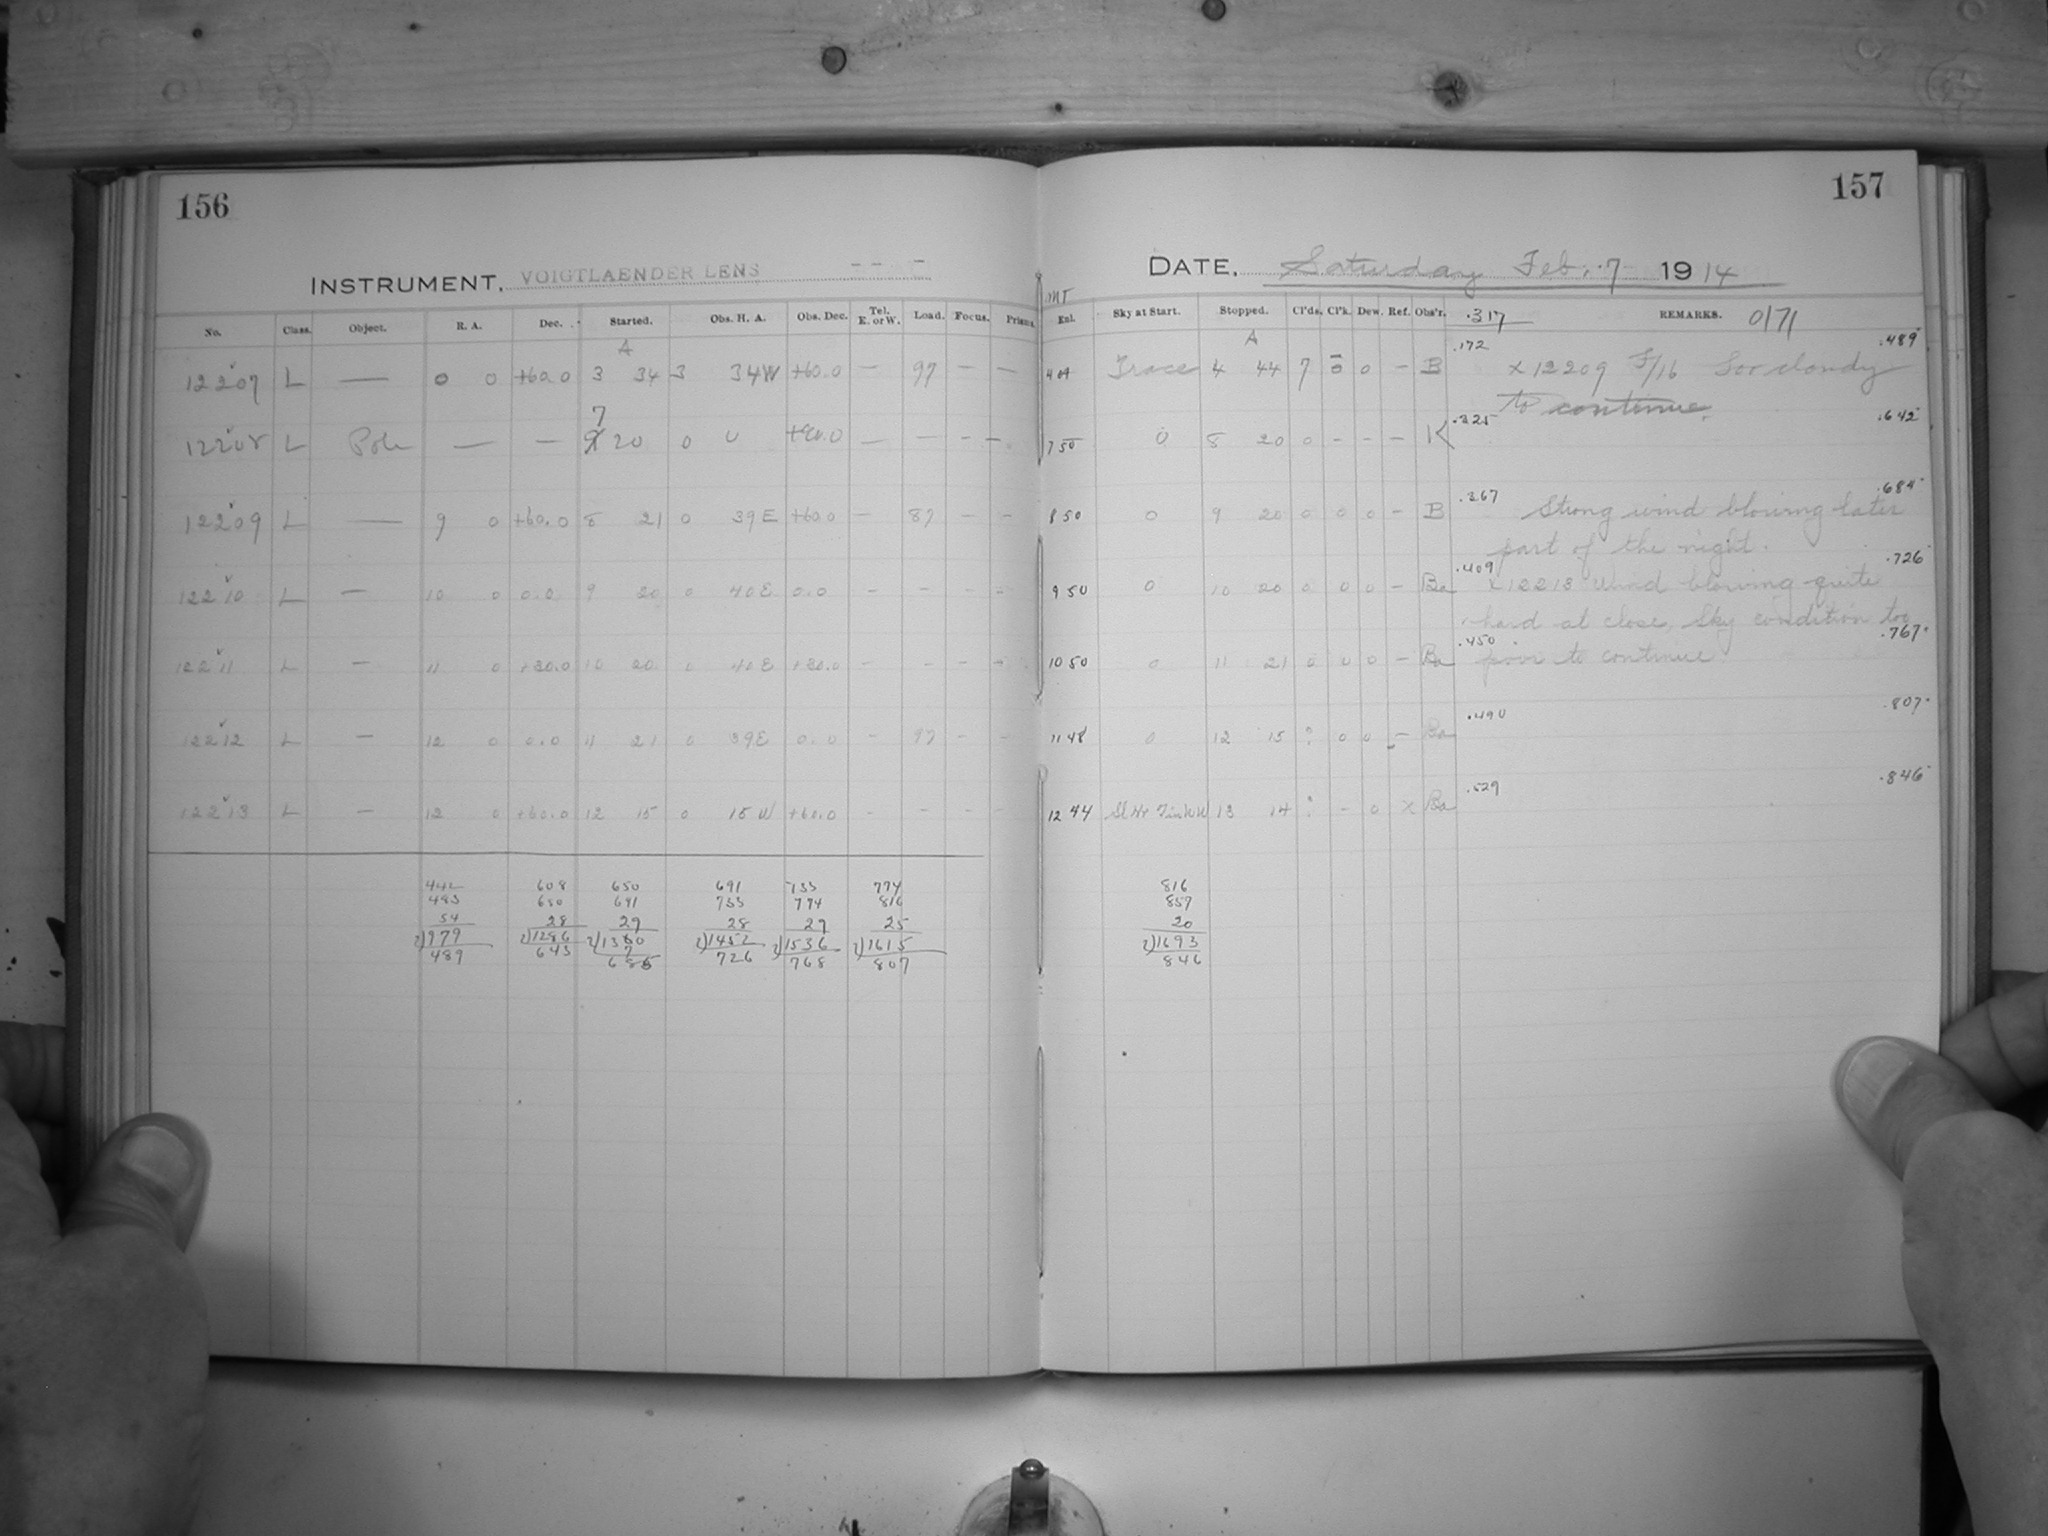 156
INSTRUMENT. VOIGTLAENDER LENS
No. Class. Object. R. A. Dec. Started. Obs. H. A. Obs. Dec. Tel. E. or W. Load. Focus. Prisms.
A
12207 L — 0 0 +60.0 3 34 3 34W +60.0 — 97 — —
7
12208 L Pole — — 20 0 0 +90.0 — — — —
12209 L — 9 0 +60.0 8 21 0 39E +60.0 — 87 — —
12210 L — 10 0 0.0 9 20 0 40E 0.0 — — — —
12211 L — 11 0 +30.0 10 20 0 40E +30.0 — — — —
12212 L — 12 0 0.0 11 21 0 39E 0.0 — 97 — —
12213 L — 12 0 +60.0 12 15 0 15W +60.0 — — — —
442 608 650 691 733 774
483 650 691 733 774 816
54 28 29 28 29 25
2)979 2)1286 2)1370 2)1452 2)1536 2)1615
489 643 685 726 768 807
157
DATE. Saturday Feb. 7 1914
MT
Enl. Sky at Start. Stopped. Cl'ds. Cl'k. Dew. Ref. Obs'r. .317 REMARKS. 0171
A .172 .489
4 04 Trace 4 44 7 0 0 — B x 12209 F/16 Too cloudy
to continue.
.325 .642
7 50 0 8 20 0 - - - K
.367 .684
8 50 0 9 20 0 0 0 - B Strong wind blowing later
part of the night.
.409 .726
9 50 0 10 20 0 0 0 - Ba x 12213 Wind blowing quite
hard at close, Sky condition too
.450 .767
10 50 0 11 21 0 0 0 - Ba poor to continue
.490 .807
11 48 0 12 15 ? 0 0 - Ba
.529 .846
12 44 13 14 ? - 0 x Ba
816
857
20
2)1693
846